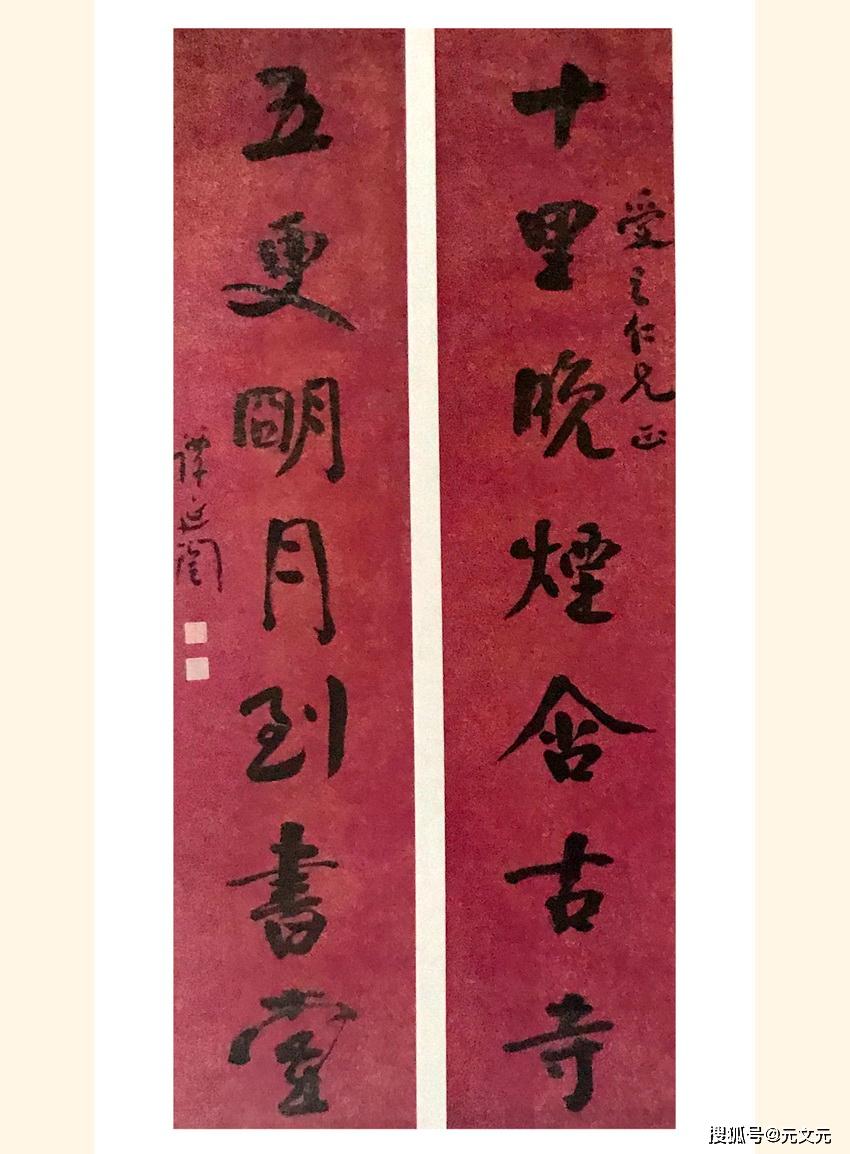 十里晚煙含古寺
受之仁兄正
五更朙月到書堂
譚延闓
搜狐号@元文元